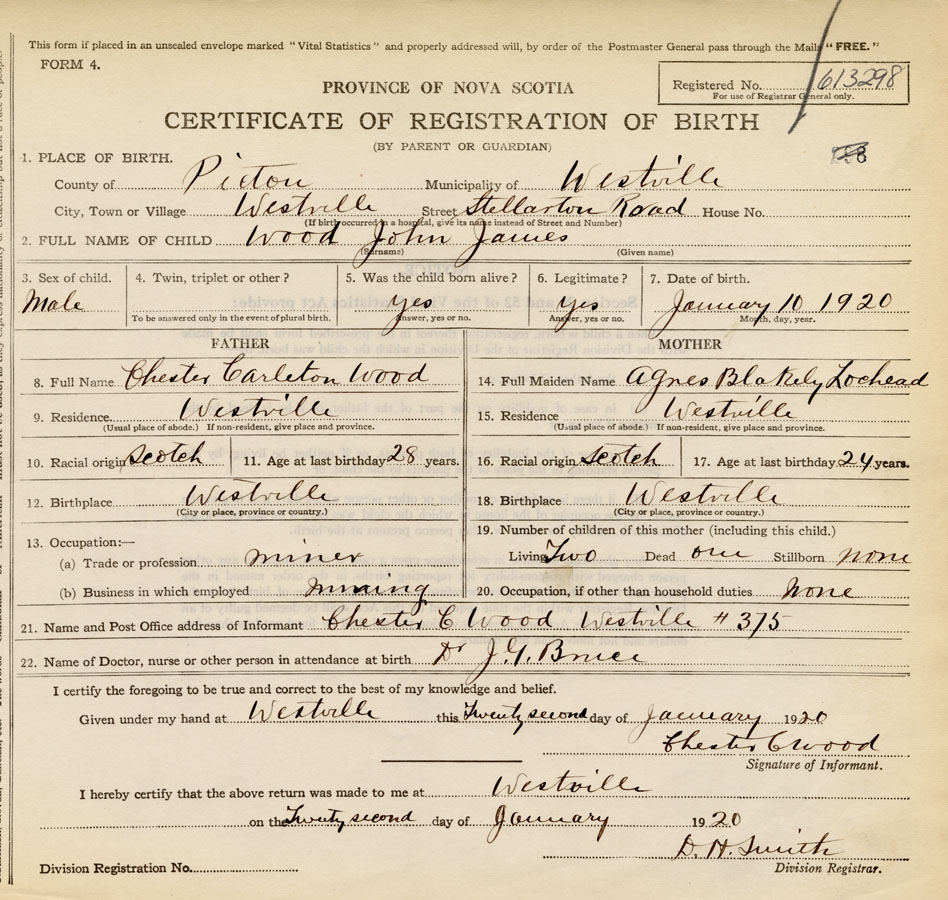 This form if placed in an unsealed envelope marked "Vital Statistics" and properly addressed will, by order of the Postmaster General pass through the Mails "FREE."
FORM 4.
Registered No. 613298
For use of Registrar General only.
PROVINCE OF NOVA SCOTIA
CERTIFICATE OF REGISTRATION OF BIRTH
(BY PARENT OR GUARDIAN)
1. PLACE OF BIRTH.
County of Pictou Municipality of Westville
City, Town or Village Westville Street Stellarton Road House No.
(If birth occurred in a hospital, give its name instead of Street and Number)
2. FULL NAME OF CHILD Wood John James
(Surname) (Given name)
3. Sex of child. 4. Twin, triplet or other? 5. Was the child born alive? 6. Legitimate? 7. Date of birth.
Male yes yes January 10 1920
To be answered only in the event of plural birth. Answer, yes or no. Answer, yes or no. Month, day, year.
FATHER MOTHER
8. Full Name Chester Carleton Wood 14. Full Maiden Name Agnes Blakely Lochead
9. Residence. Westville 15. Residence Westville
(Usual place of abode.) If non-resident, give place and province. (Usual place of abode.) If non-resident, give place and province.
10. Racial origin Scotch 11. Age at last birthday 28 years. 16. Racial origin Scotch 17. Age at last birthday 24 years.
12. Birthplace Westville 18. Birthplace Westville
(City or place, province or country.) (City or place, province or country.)
13. Occupation:— 19. Number of children of this mother (including this child.)
(a) Trade or profession miner Living Two Dead one Stillborn none
(b) Business in which employed mining 20. Occupation, if other than household duties None
21. Name and Post Office address of Informant Chester C Wood Westville # 375
22. Name of Doctor, nurse or other person in attendance at birth Dr J. Bruce
I certify the foregoing to be true and correct to the best of my knowledge and belief.
Given under my hand at Westville this Twenty second day of January 1920
Chester C Wood
Signature of Informant.
I hereby certify that the above return was made to me at Westville
on the Twenty second day of January 1920
D. H. Smith
Division Registration No. Division Registrar.